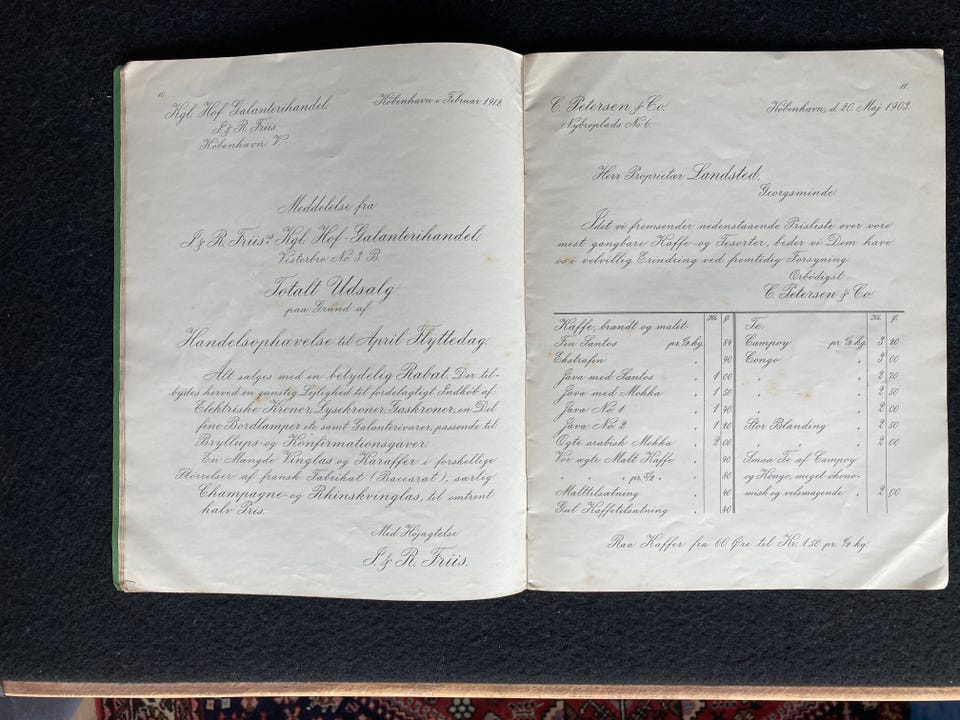 10.
Kgl. Hof Galanterihandel
J. & R. Friis.
København V.
København i Februar 1912.
Meddelelse fra
J. & R. Friis' Kgl. Hof-Galanterihandel.
Vesterbro No 3 B
Totalt Udsalg
paa Grund af
Handelsophævelse til April Flyttedag.
Alt sælges med en betydelig Rabat. Der til-
bydes herved en gunstig Lejlighed til fordelagtigt Indkøb af:
Elektriske Kroner, Lysekroner, Gaskroner, en Del
fine Bordlamper etc samt Galanterivarer, passende til
Bryllups- og Konfirmationsgaver.
En Mængde Vinglas og Karafler i forskellige
Størrelser af fransk Fabrikat (Baccarat), særlig
Champagne- og Rhinskvinglas, til omtrent
halv Pris.
Med Højagtelse
J. & R. Friis.
11.
C. Petersen & Co.
Nybroplads No. 6.
København, d. 20. Maj 1903
Herr Proprietær Landsted,
Georgsminde.
Idet vi fremsender nedenstaaende Prisliste over vore
mest gangbare Kaffe- og Tesorter, beder vi Dem have
os i velvillig Erindring ved fremtidig Forsyning.
Ærbødigst
C. Petersen & Co.
Kaffe, brændt og malet Kr. Ø.
Fin Santos pr. ½ kg. 84
Ekstrafin " 90
Java med Santos " 1 00
Java med Mokka " 1 50
Java No. 1 " 1 40
Java No. 2 " 1 20
Ægte arabisk Mokka " 2 00
Vor ægte Malt Kaffe " 90
" " " pr. ½ " 80
Malttilsætning " 40
Gul Kaffetilsætning " 40
Te. Kr. Ø.
Campoy pr. ½ kg. 3 20
Congo " 3 00
" " 2 70
" " 2 50
" " 2 00
Stor Blanding " 2 50
" " " 2 00
Smaa Te af Campoy
og Kongo, meget økono-
misk og velsmagende " 2 00
Raa Kaffer fra 60 Øre til Kr. 1.50 pr. ½ kg.